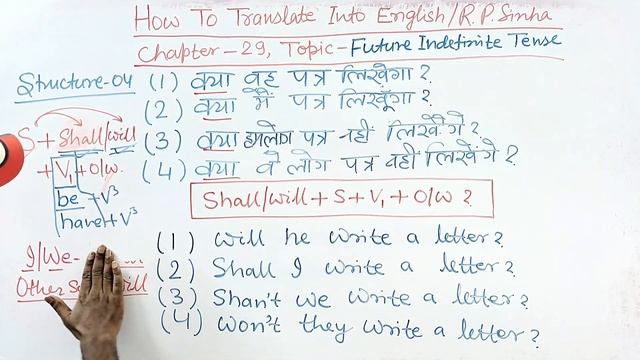 How To Translate Into English/R.P. Sinha
Chapter-29, Topic-Future Indefinite Tense
Structure-04
S + Shall/will
+ V₁ + O/w.
be + V³
have + V³
I/We-
Other
(1) क्या वह पत्र लिखेगा ?
(2) क्या मैं पत्र लिखूँगा ?
(3) क्या हमलोग पत्र नहीं लिखेंगे ?
(4) क्या वे लोग पत्र नहीं लिखेंगे ?
Shall/will + S + V₁ + O/w ?
(1) Will he write a letter ?
(2) Shall I write a letter ?
(3) Shan't we write a letter ?
(4) Won't they write a letter ?